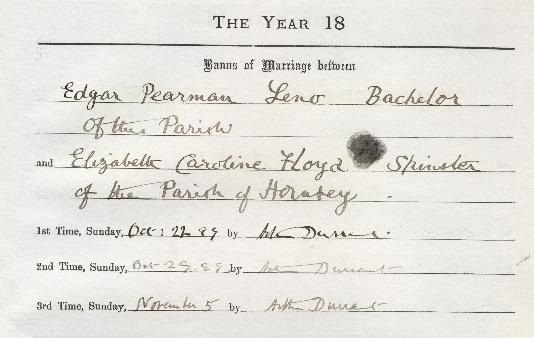 THE YEAR 18
Banns of Marriage between
Edgar Pearman Leno Bachelor
of this Parish
and Elizabeth Caroline Floyd Spinster
of the Parish of Hornsey
1st Time, Sunday, Oct: 22 89 by Durrant
2nd Time, Sunday, Oct 29 89 by Durrant
3rd Time, Sunday, November 5 by Arthur Durrant